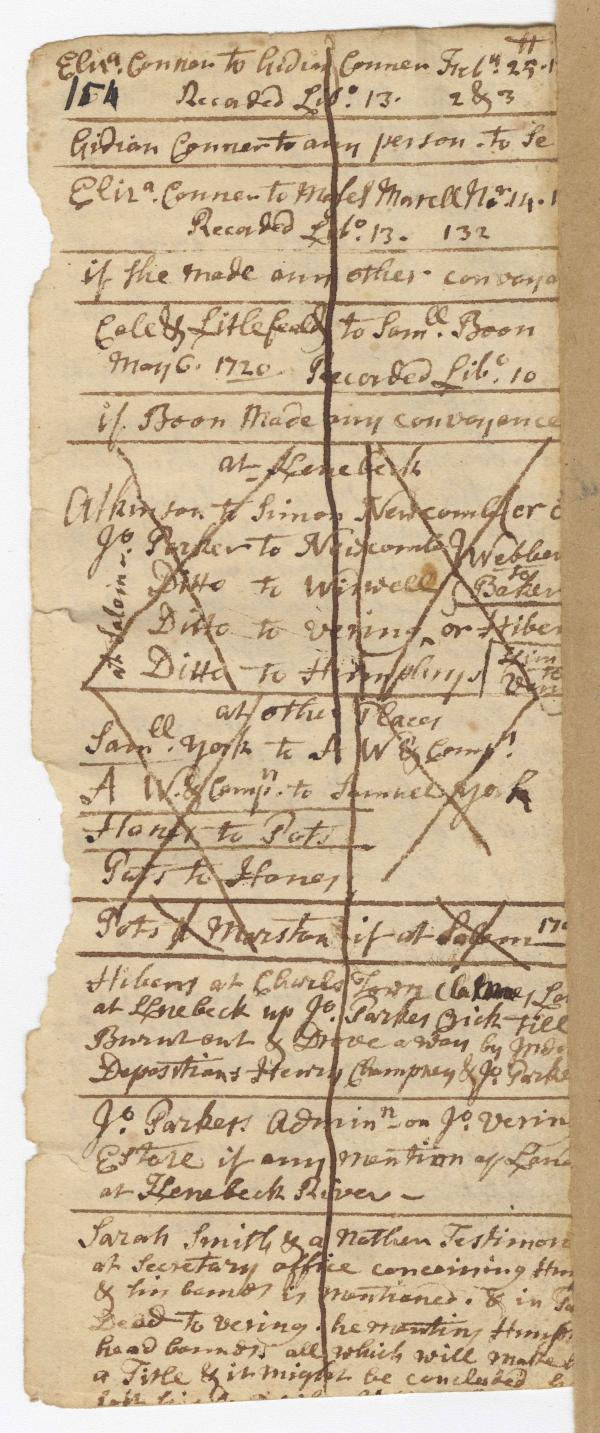 Eliza. Conner to Gidian Conner Feb. 25.
154 Recorded Libo. 13. 2 & 3
Gidian Conner to any person. to Se
Eliza. Conner to Moses Marell 14.
Recorded Libo. 13. 132
if she made any other conveya
Caleb Litlefeald to Samll. Boon
May 6. 1720 Recorded Libo. 10
if Boon Made any conveyance
at Kenebeck
Atkinson to Simon Newcomb or
Jo. Parker to Newcomb Webber
at Salem Ditto to Wiswell to Baker
Ditto to Vering or Hiber
Ditto to Humphrys
at other Places
Samll. York to A W & Comp.
A W. & Compn. to Samuel York
Hanes to Pots
Pots to Hanes
Pots & Marston if at Salem
Hibens at Charls Town
at Kenebeck up Jo. Parkes Crick till
Burnt out & Drove away by
Depositians Henry Champney & Jo Parke
Jo Parkers Adminn. on Jo. Verin
Estate if any mention of Lan
at Kenebeck River
Sarah Smith & a Nother Testimon
at Secretary office concerning
& his bounds is mentioned. & in
Deed to Vering. he mentins
head bounds all which will make
a Title & it might be concluded